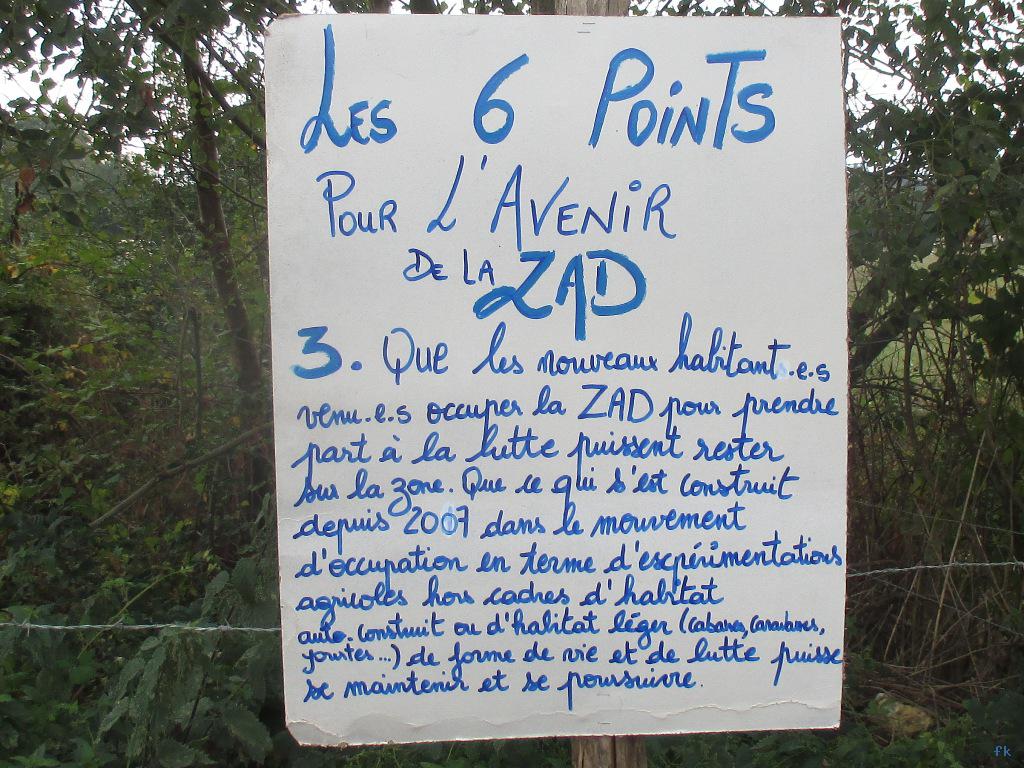 Les 6 Points
Pour L'Avenir
De La ZAD
3. Que les nouveaux habitant.e.s
venu.e.s occuper la ZAD pour prendre
part à la lutte puissent rester
sur la zone. Que ce qui s'est construit
depuis 2007 dans le mouvement
d'occupation en terme d'expérimentations
agricoles hors cadres d'habitat
auto-construit ou d'habitat léger (cabanes, caravanes,
yourtes...) de forme de vie et de lutte puisse
se maintenir et se poursuivre.
fk